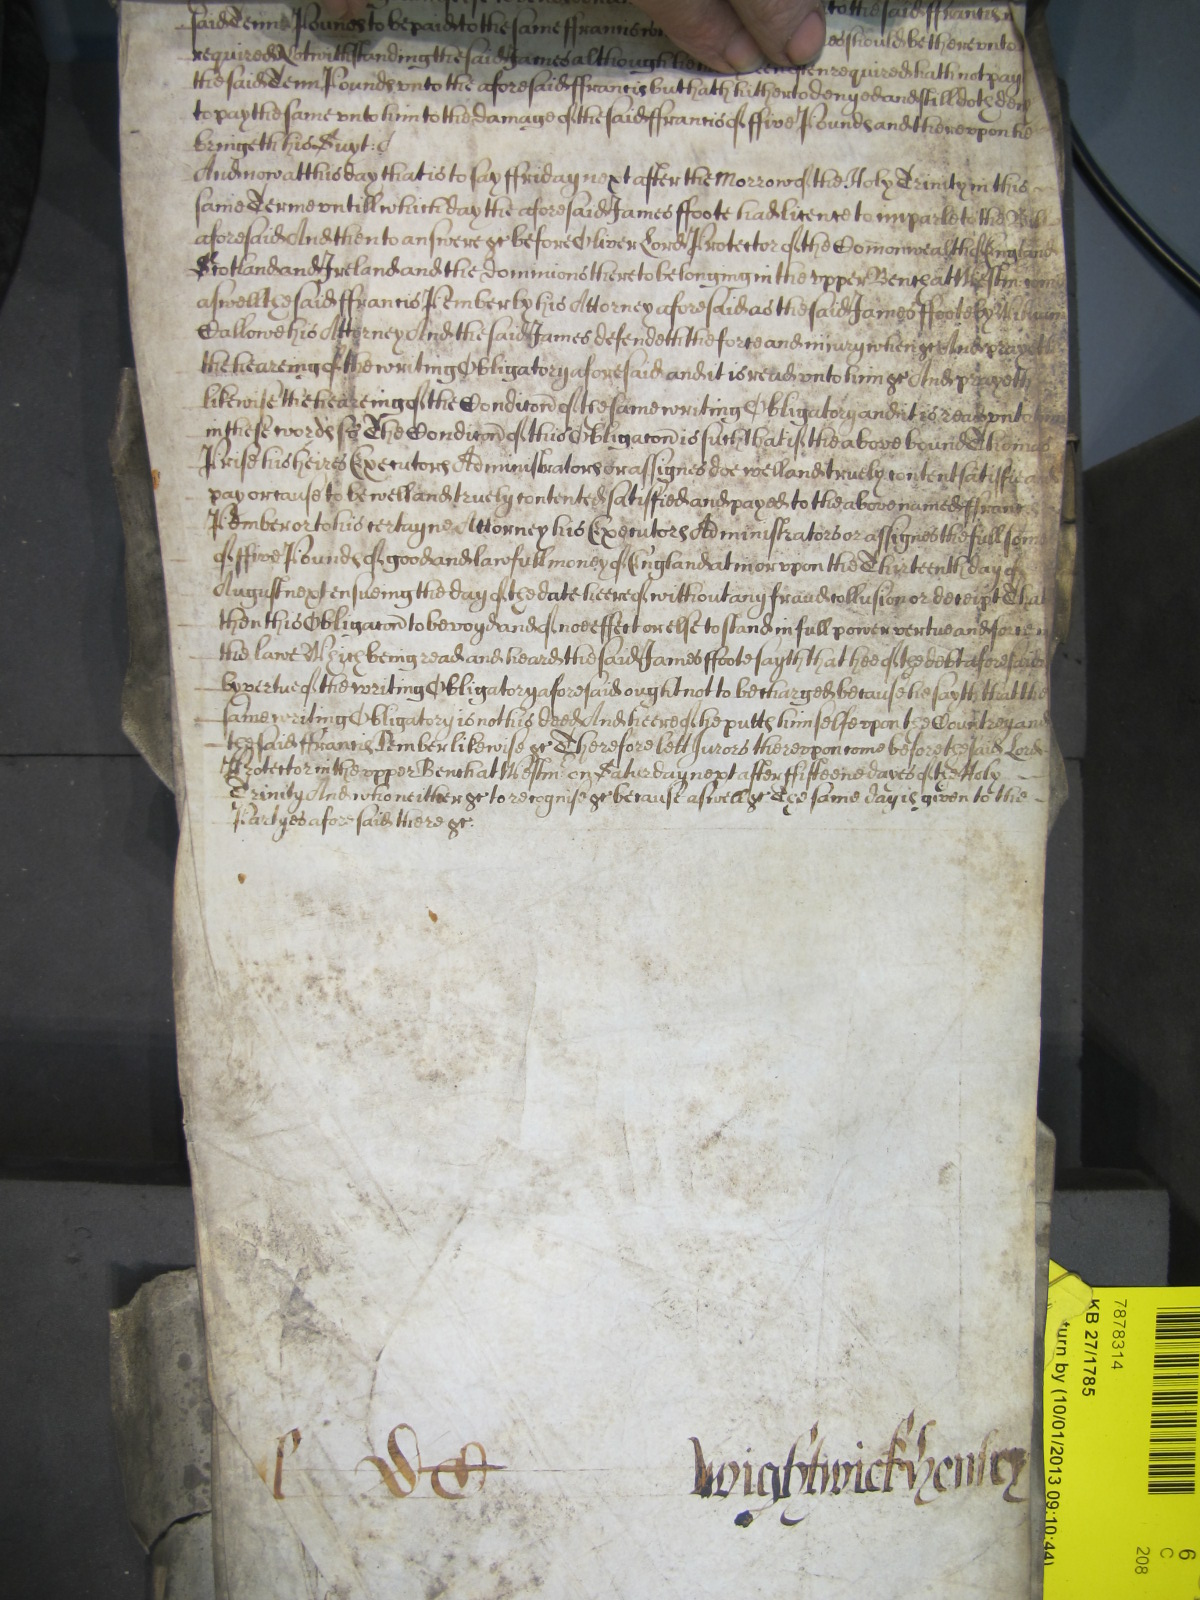 to the said ffrancis
said Tenn Pounds to be paid to the same ffrancis should be therevnto
required Notwithstanding the said James although often required hath not payd
the said Tenn Pounds vnto the aforesaid ffrancis but hath hitherto denyed and still doth deny
to pay the same vnto him to the damage of the said ffrancis of ffive Pounds and therevpon he
bringeth his Suyt: &
And now at this day that is to say ffriday next after the Morrow of the Holy Trinity in this
same Terme vntill which day the aforesaid James ffoote had licence to imparle to the Bill
aforesaid And then to answere &c before Oliver Lord Protector of the Comonwealth of England
Scotland and Ireland and the dominions thereto belonging in the vpper Bench at Westm: come
aswell the said ffrancis Pember by his Attorney aforesaid as the said James ffoote by William
Callowe his Attorney And the said James defendeth the force and iniury when &c And prayeth
the heareing of the writing Obligatory aforesaid and it is read vnto him &c And prayeth
likewise the heareing of the Condicon of the same writing Obligatory and it is read vnto him
in these words ss The Condicon of this Obligacon is such that if the above bound Thomas
Prise his heires Executors Administrators or assignes doe well and truely content satisfie and
pay or cause to be well and truely contented satisfied and payed to the above named ffrancis
Pember or to his certayne Attorney his Executors Administrators or assignes the full some
of ffive Pounds of good and lawfull money of England at in or vpon the Thirteenth day of
August next ensueing the day of the date heereof without any fraud collusion or deceipt That
then this Obligacon to be voyd and of noe effect or else to stand in full power vertue and force in
the lawe Which being read and heard the said James ffoote sayth that hee of the debt aforesaid
by vertue of the writing Obligatory aforesaid ought not to be charged because he sayth that the
same writing Obligatory is not his deed And heereof he putts himselfe vpon the Countrey and
the said ffrancis Pember likewise &c Therefore lett Jurors therevpon come before the said Lord
Protector in the vpper Bench at Westm: on Saturday next after ffifteene dayes of the Holy
Trinity And who neither &c to recognise &c because aswell &c The same day is given to the
Partyes aforesaid there &c:
Wightwick & henley
KB 27/1785
7878314
turn by (10/01/2013 09:10:44)
6
C
208